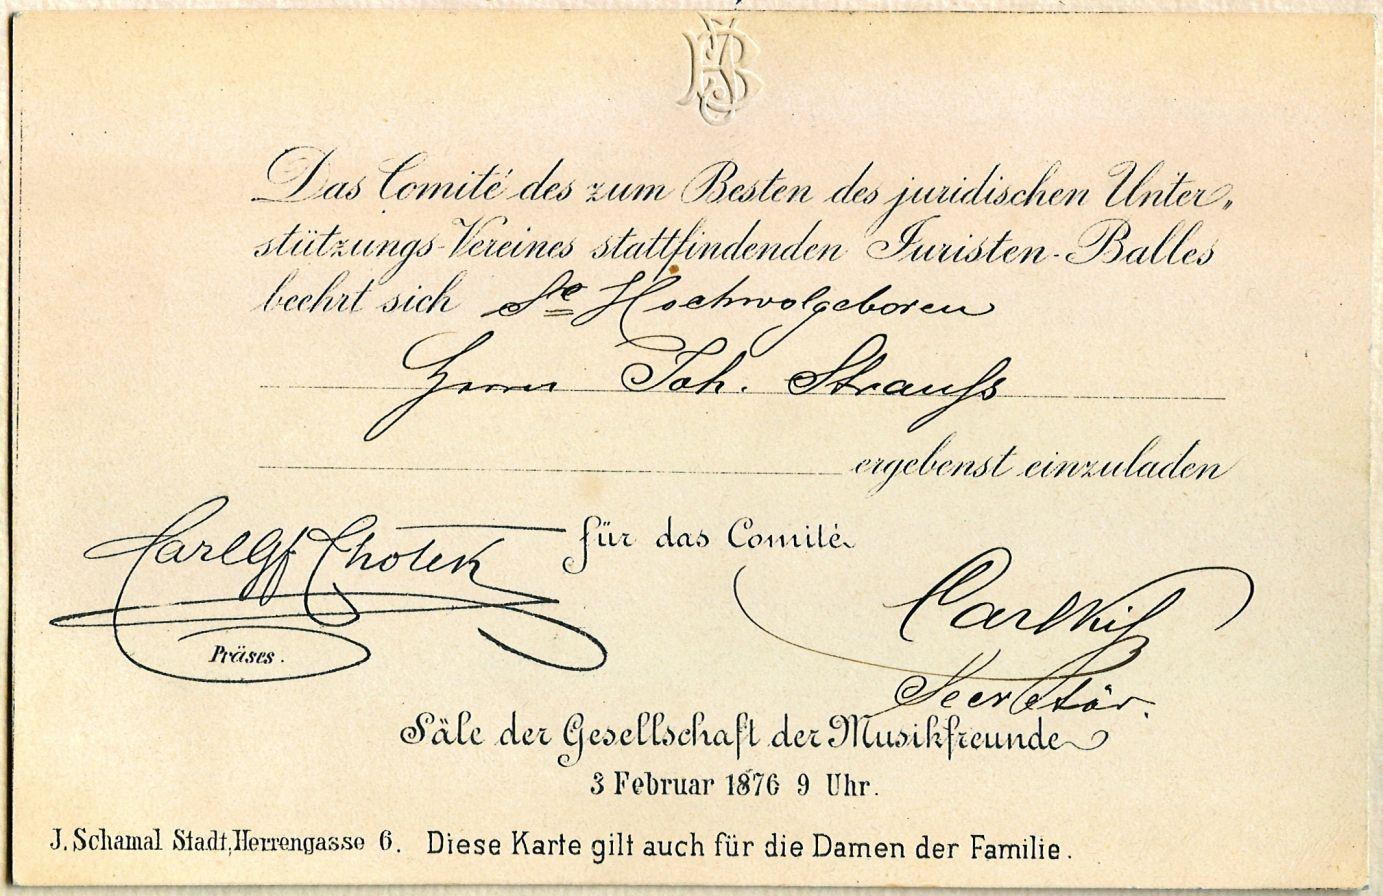 JB
Das Comité des zum Besten des juridischen Unter„
stützungs-Vereines stattfindenden Juristen-Balles
beehrt sich Se Hochwolgeboren
Herrn Joh. Strauss
ergebenst einzuladen
für das Comité
Carl Gf Chotek
Präses.
Carl
Secretär.
Säle der Gesellschaft der Musikfreunde
3 Februar 1876 9 Uhr.
J. Schamal Stadt, Herrengasse 6. Diese Karte gilt auch für die Damen der Familie.